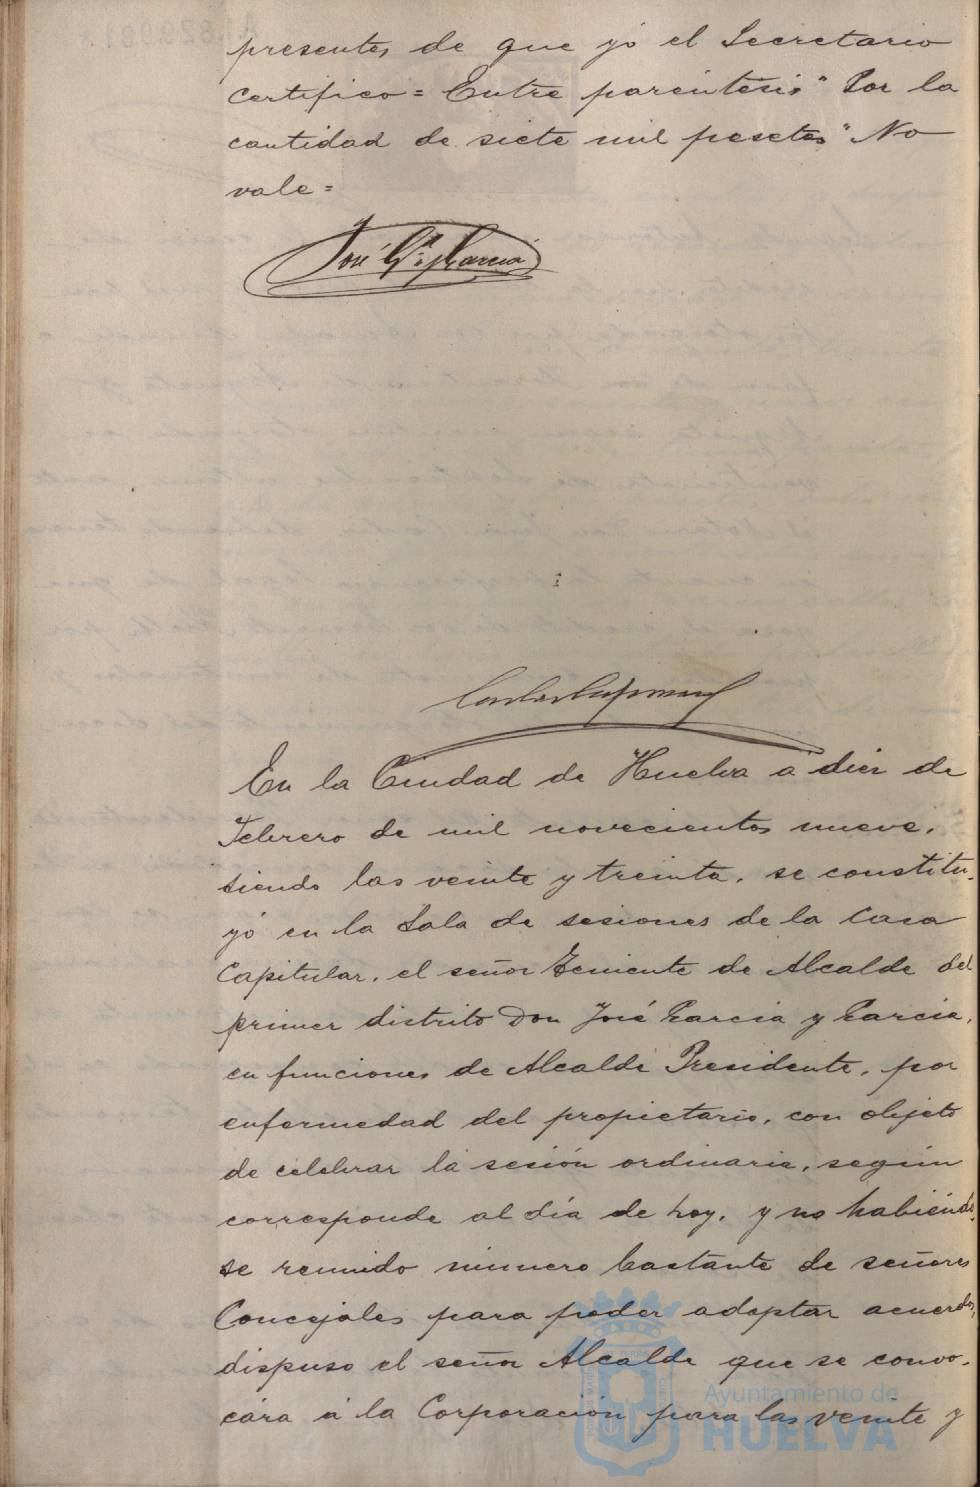 presentes de que yó el Secretario
certifico = Entre paréntesis " Por la
cantidad de siete mil pesetas " No
vale =
José Gª y García
En la Ciudad de Huelva á diez de
Febrero de mil novecientos nueve,
siendo las veinte y treinta, se constitu-
yó en la Sala de sesiones de la Casa
Capitular, el señor Teniente de Alcalde del
primer distrito Don José García y García,
en funciones de Alcalde Presidente, por
enfermedad del propietario, con objeto
de celebrar la sesión ordinaria, según
corresponde al día de hoy, y no habiéndo-
se reunido número bastante de señores
Concejales para poder adoptar acuerdos,
dispuso el señor Alcalde que se convo-
cára á la Corporación para las veinte y
Ayuntamiento de
HUELVA